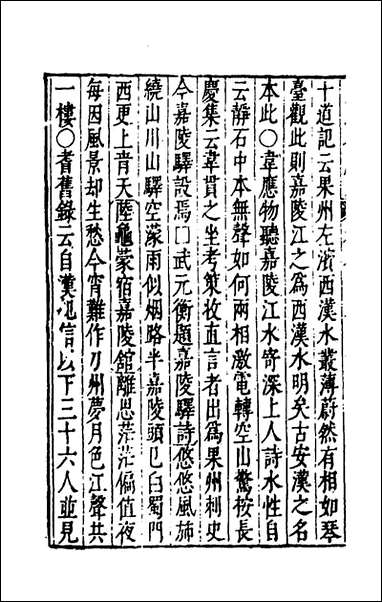 十道記云果州左濱西漢水叢薄蔚然有相如琴
臺觀此則嘉陵江之為西漢水明矣古安漢之名
本此〇韋應物聽嘉陵江水寄深上人詩水性自
云靜石中本無聲如何兩相激雷轉空山驚按長
慶集云韋貫之坐考策收直言者出為果州刺史
今嘉陵驛設焉□武元衡題嘉陵驛詩悠悠風斾
繞山川山驛空濛雨似烟路半嘉陵頭已白蜀門
西更上青天陸龜蒙宿嘉陵館離思茫茫偏值夜
每因風景却生愁今宵難作刀州夢月色江聲共
一樓〇耆舊錄云自漢以下三十六人並見